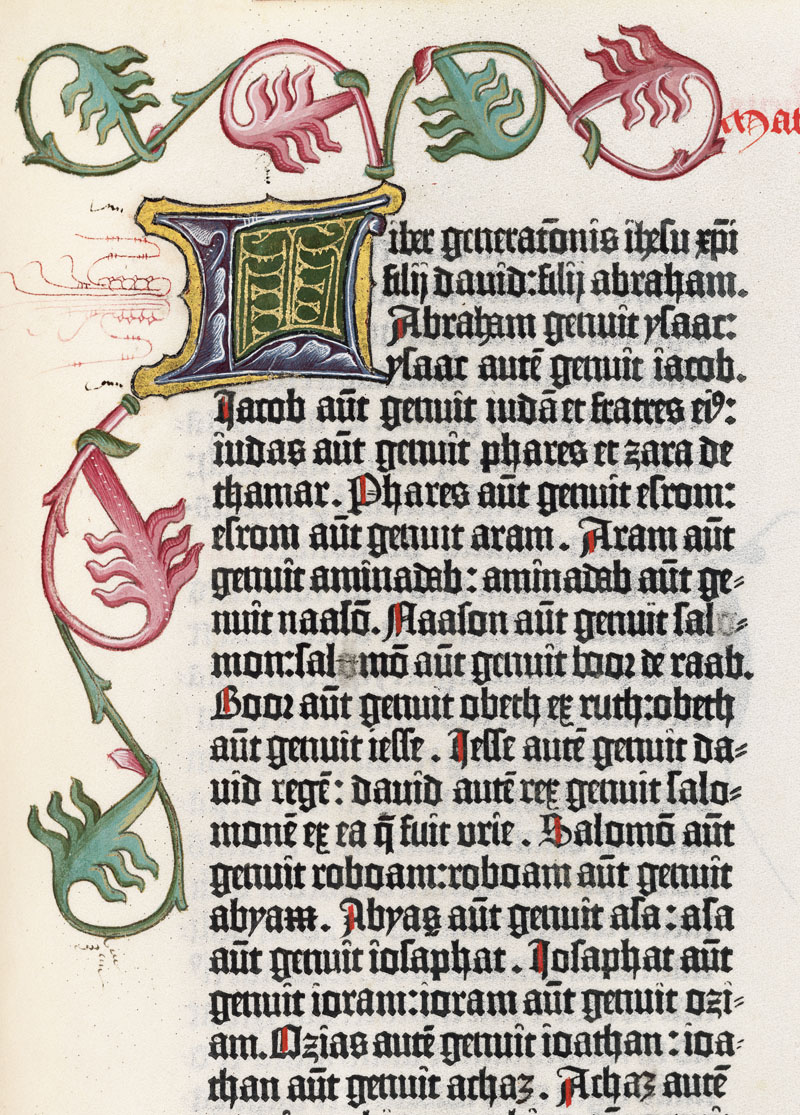 Mat
Liber generatōnis ihesu xp̄i
filij david: filij abraham.
Abraham genuit ysaac:
ysaac autē genuit iacob.
Jacob aūt genuit iudā et fratres eiꝰ:
iudas aūt genuit phares et zara de
thamar. Phares aūt genuit esrom:
esrom aūt genuit aram. Aram aūt
genuit aminadab: aminadab aūt ge-
nuit naasō. Naason aūt genuit salo-
mon: salomō aūt genuit booz de raab.
Booz aūt genuit obeth ex ruth: obeth
aūt genuit iesse. Jesse autē genuit da-
uid regē: dauid autē rex genuit salo-
monē ex ea q̄ fuit vrie. Salomō aūt
genuit roboam: roboam aūt genuit
abyam. Abyas aūt genuit asa: asa
aūt genuit iosaphat. Josaphat aūt
genuit ioram: ioram aūt genuit ozi-
am. Ozias autē genuit ioathan: ioa-
than aūt genuit achaz. Achaz autē